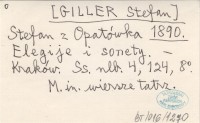 [GILLER Stefan]
Stefan z Opatówka 1890.
Elegije i sonety. –
Kraków. Ss. nlb. 4, 124, 8°
M. in. wiersze tatrz.